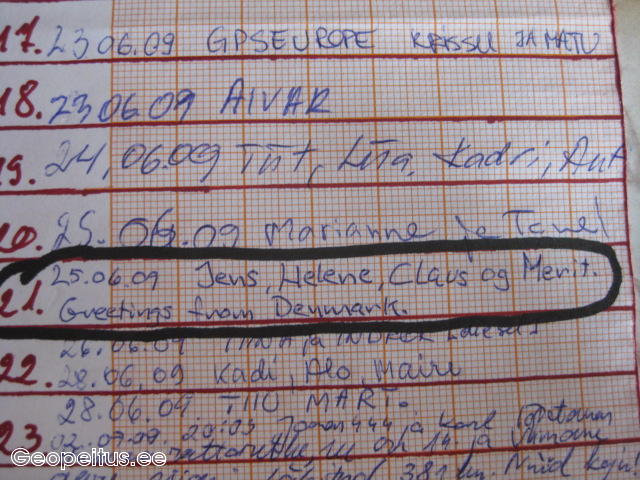 17. 23 06.09 GPSEUROPE KRISSU JA MATU
18. 23 06.09 AIVAR
19. 24,06.09 Tiit, Liia, Kadri, Ant
20. 25.06.09 Marianne ja Tanel
21. 25.06.09 Jens, Helene, Claus og Merit.
Greetings from Denmark.
26.06.09 TIINA ja INDREK
22. 28.06,09 Kadi, Alo, Maire
28.06.09. TIIU MART.
23 02.07.09. 20:03 ja Karl
on 14. ja
381 km. Nüüd koju!
Geopeitus.ee